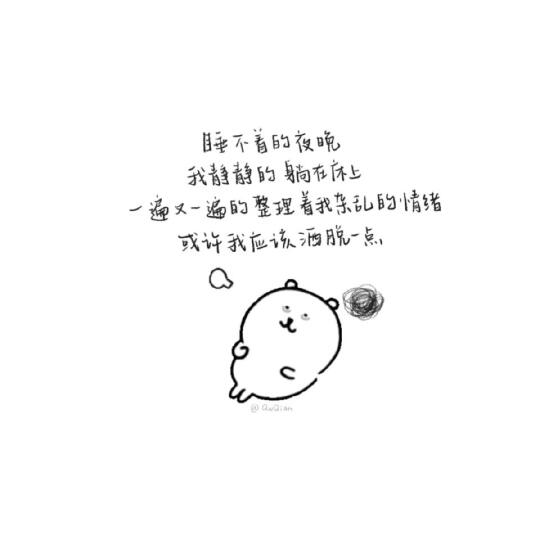 睡不着的夜晚
我静静的躺在床上
一遍又一遍的整理着我杂乱的情绪
或许我应该洒脱一点
@QuQian